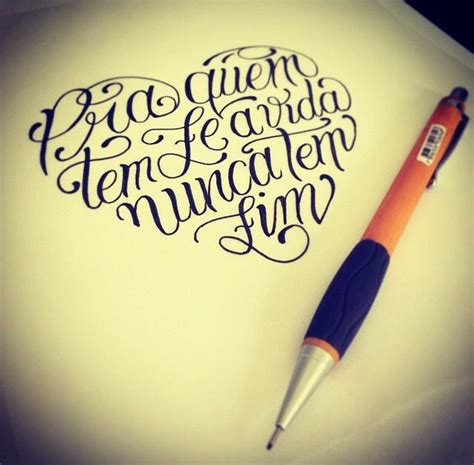 Pra quem
tem fé a vida
nunca tem
fim